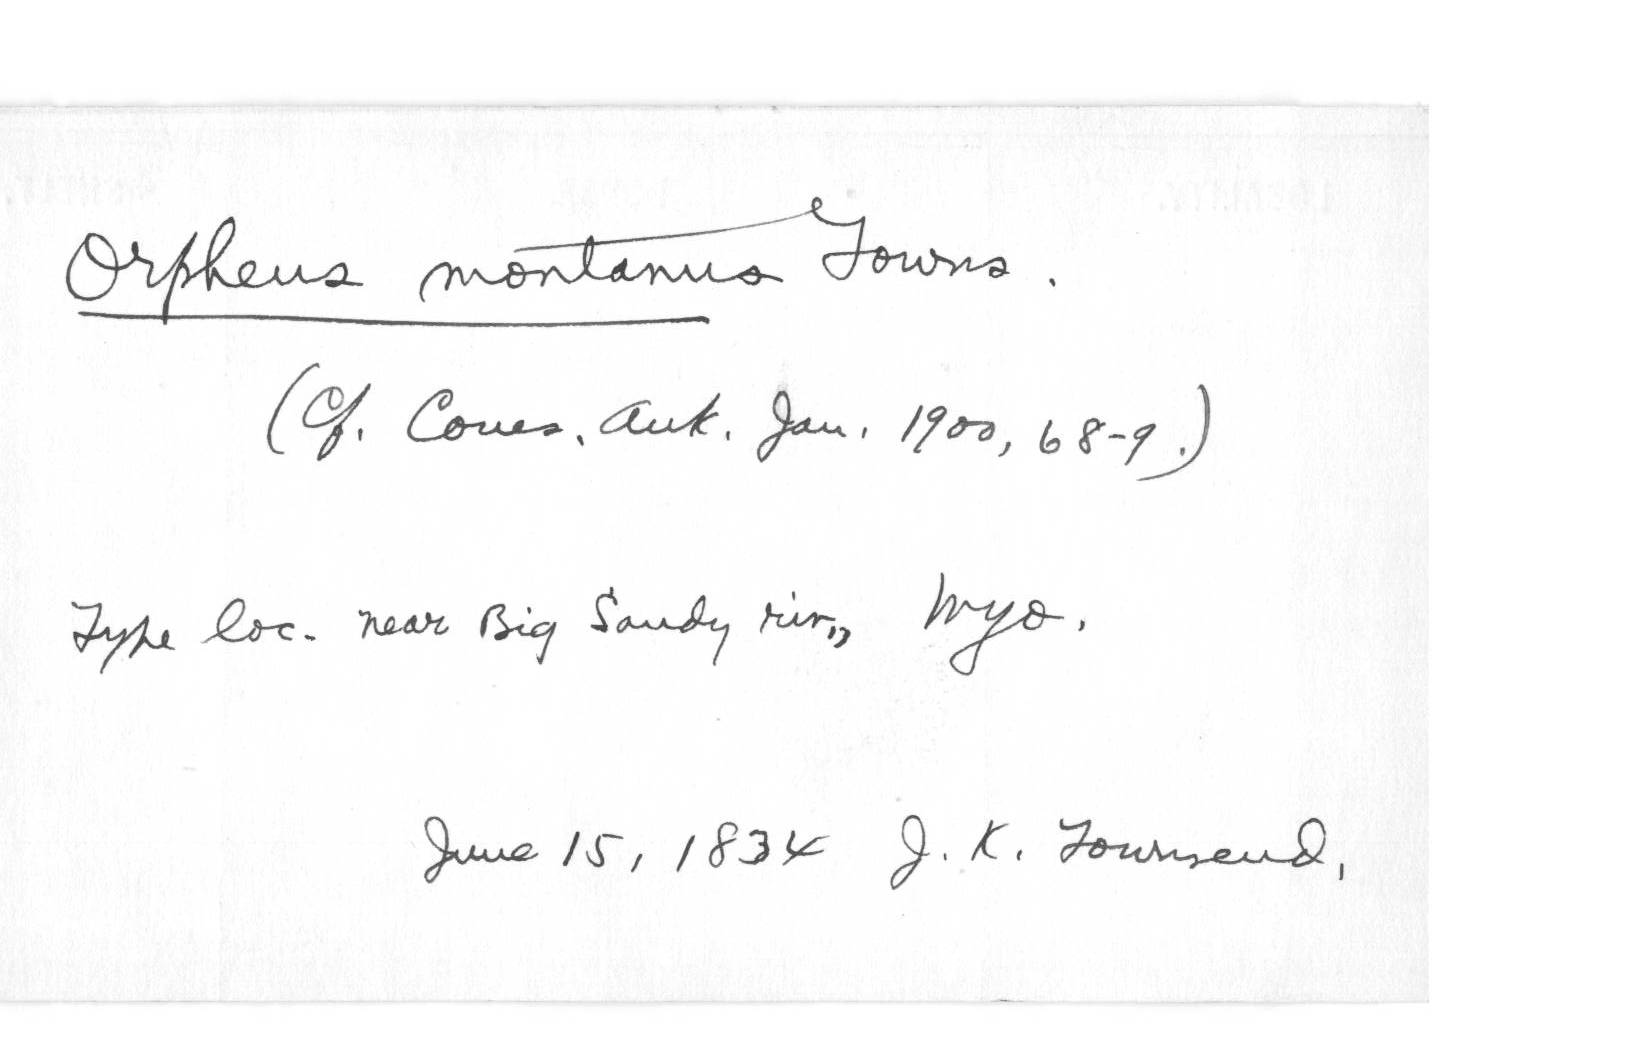 Orpheus montanus Towns.
(Cf. Coues. Auk. Jan. 1900, 68-9.)
Type loc. near Big Sandy river, Wyo.
June 15, 1834 J. K. Townsend,